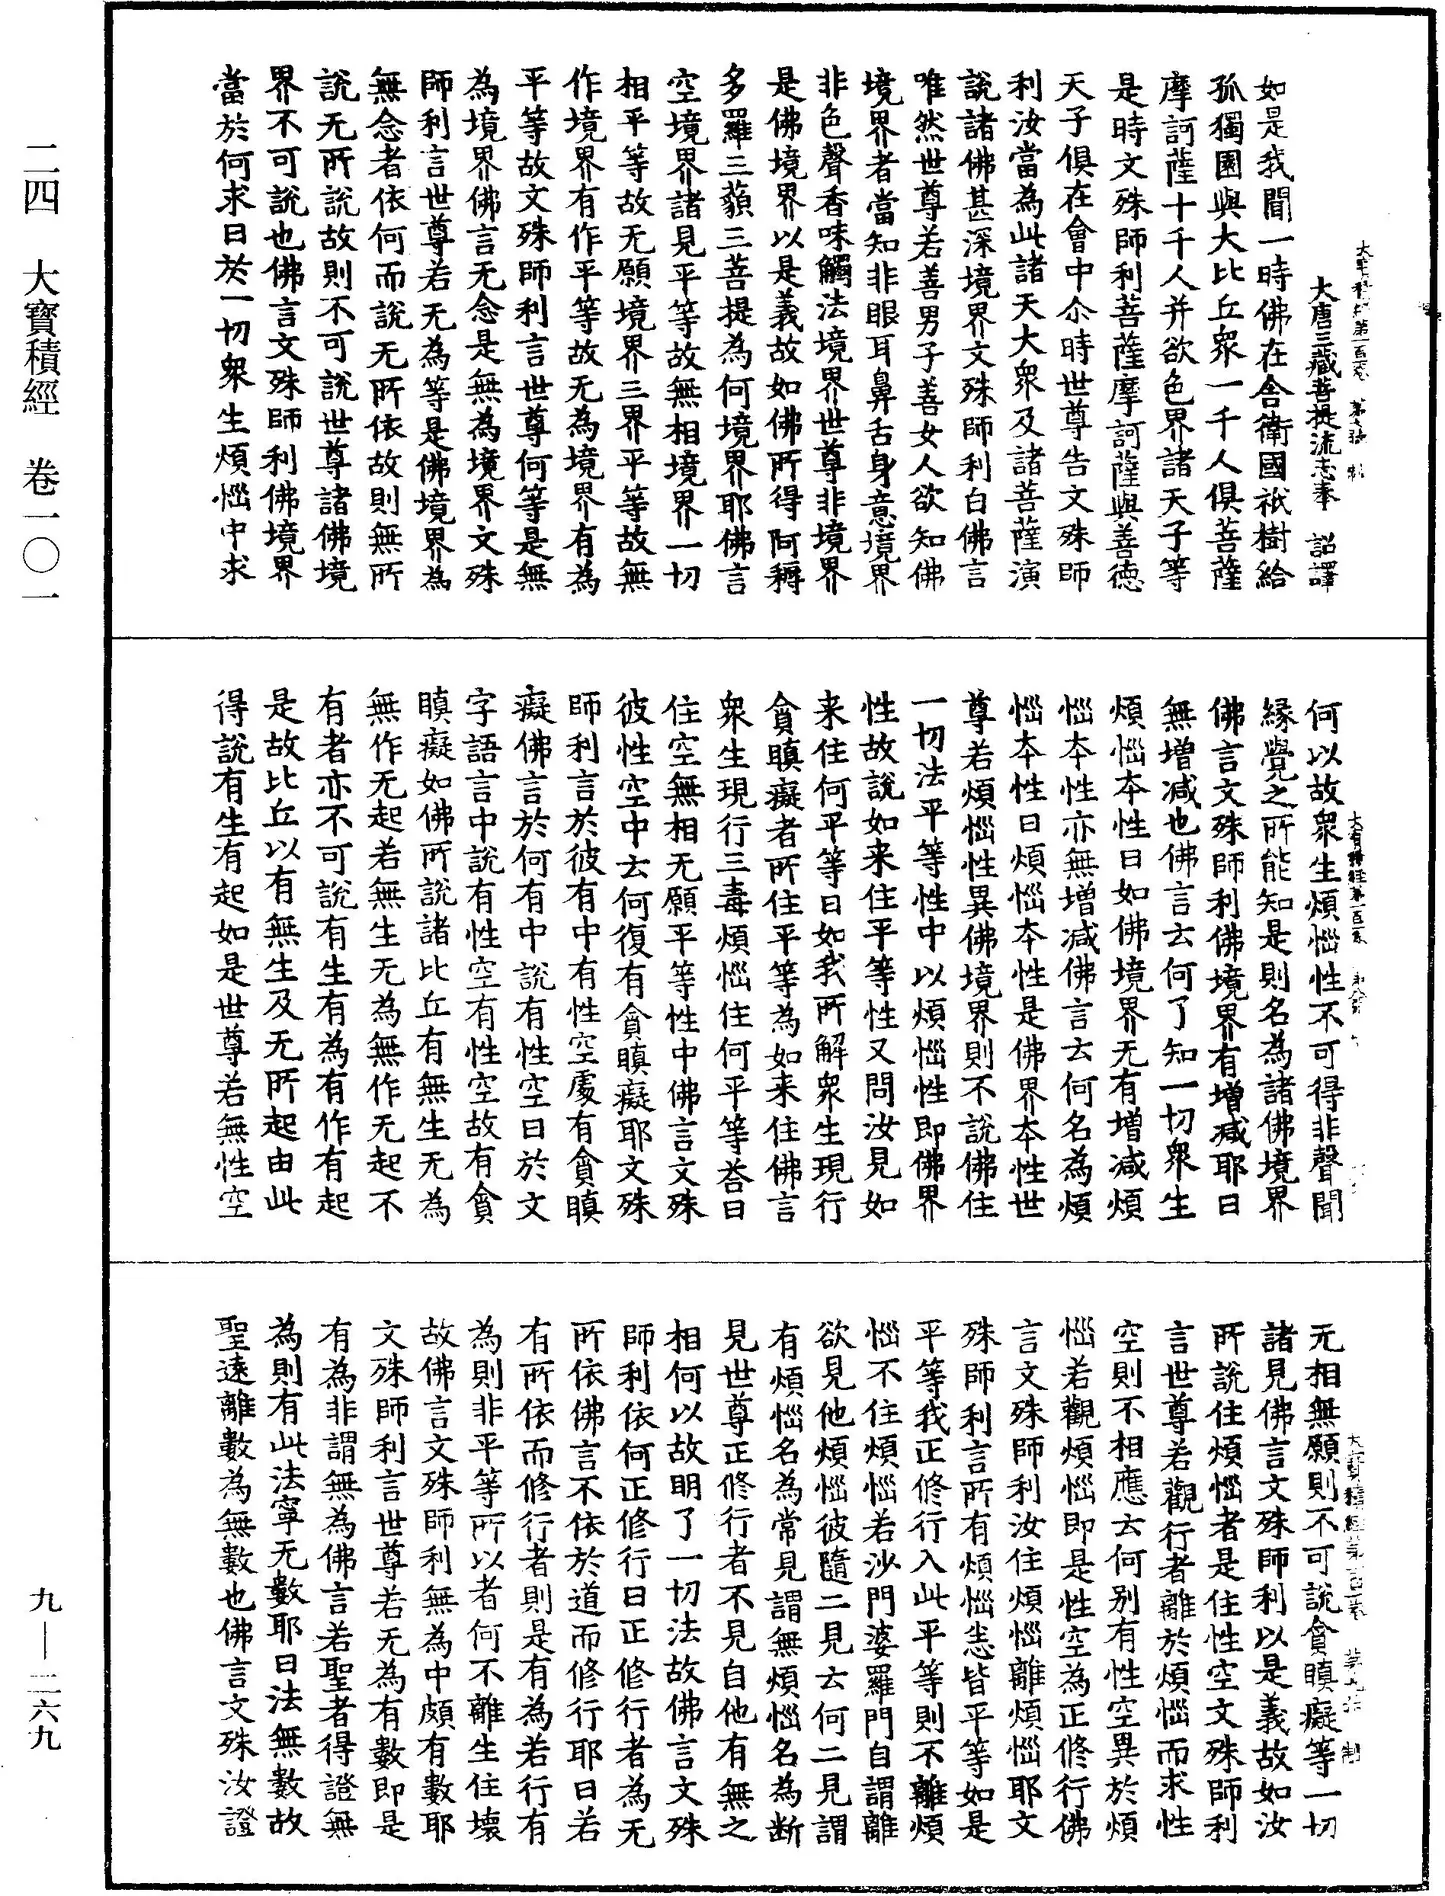 大唐三藏菩提流志奉 詔譯
如是我聞一時佛在舍衛國祇樹給
孤獨園與大比丘衆一千人俱菩薩
摩訶薩十千人并欲色界諸天子等
是時文殊師利菩薩摩訶薩與善德
天子俱在會中尒時世尊告文殊師
利汝當為此諸天大衆及諸菩薩演
說諸佛甚深境界文殊師利白佛言
唯然世尊若善男子善女人欲知佛
境界者當知非眼耳鼻舌身意境界
非色聲香味觸法境界世尊非境界
是佛境界以是義故如佛所得阿耨
多羅三藐三菩提為何境界耶佛言
空境界諸見平等故無相境界一切
相平等故无願境界三界平等故無
作境界有作平等故无為境界有為
平等故文殊師利言世尊何等是無
為境界佛言无念是無為境界文殊
師利言世尊若无為等是佛境界為
無念者依何而說无所依故則無所
說无所說故則不可說世尊諸佛境
界不可說也佛言文殊師利佛境界
當於何求曰於一切衆生煩惱中求
何以故衆生煩惱性不可得非聲聞
緣覺之所能知是則名為諸佛境界
佛言文殊師利佛境界有增減耶曰
無增減也佛言云何了知一切衆生
煩惱本性曰如佛境界无有增減煩
惱本性亦無增減佛言云何名為煩
惱本性曰煩惱本性是佛界本性世
尊若煩惱性異佛境界則不說佛住
一切法平等性中以煩惱性即佛界
性故說如来住平等性又問汝見如
来住何平等曰如我所解衆生現行
貪瞋癡者所住平等為如来住佛言
衆生現行三毒煩惱住何平等荅曰
住空無相无願平等性中佛言文殊
彼性空中云何復有貪瞋癡耶文殊
師利言於彼有中有性空處有貪瞋
癡佛言於何有中說有性空曰於文
字語言中說有性空有性空故有貪
瞋癡如佛所說諸比丘有無生无為
無作无起若無生无為無作无起不
有者亦不可說有生有為有作有起
是故比丘以有無生及无所起由此
得說有生有起如是世尊若無性空
无相無願則不可說貪瞋癡等一切
諸見佛言文殊師利以是義故如汝
所說住煩惱者是住性空文殊師利
言世尊若觀行者離於煩惱而求性
空則不相應云何別有性空異於煩
惱若觀煩惱即是性空為正修行佛
言文殊師利汝住煩惱離煩惱耶文
殊師利言所有煩惱悉皆平等如是
平等我正修行入此平等則不離煩
惱不住煩惱若沙門婆羅門自謂離
欲見他煩惱彼隨二見云何二見謂
有煩惱名為常見謂無煩惱名為斷
見世尊正修行者不見自他有無之
相何以故明了一切法故佛言文殊
師利依何正修行曰正修行者為无
所依佛言不依於道而修行耶曰若
有所依而修行者則是有為若行有
為則非平等所以者何不離生住壞
故佛言文殊師利無為中頗有數耶
文殊師利言世尊若无為有數即是
有為非謂無為佛言若聖者得證無
為則有此法寧无數耶曰法無數故
聖遠離數為無數也佛言文殊汝證
二四 大寶積經 卷一〇一
九—二六九